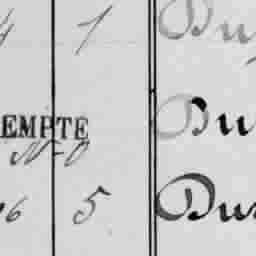 4 1 Du
EMPTE Du
N-O
26 5 Du